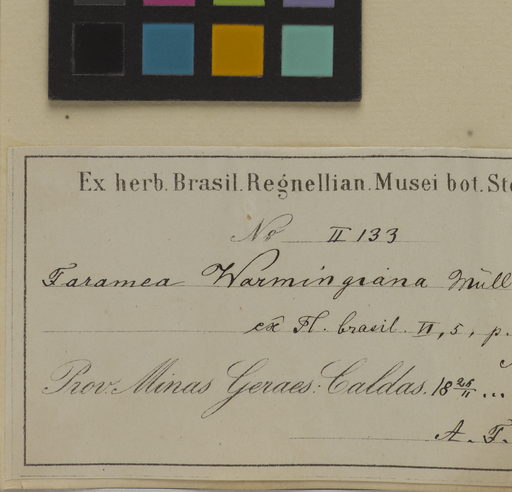 Ex herb. Brasil. Regnellian. Musei bot. Sto
No II 133
Faramea Warmingiana Müll
ex Fl. brasil. VI, 5, p.
Prov. Minas Geraes: Caldas. 18 25/11 ...
A. F.